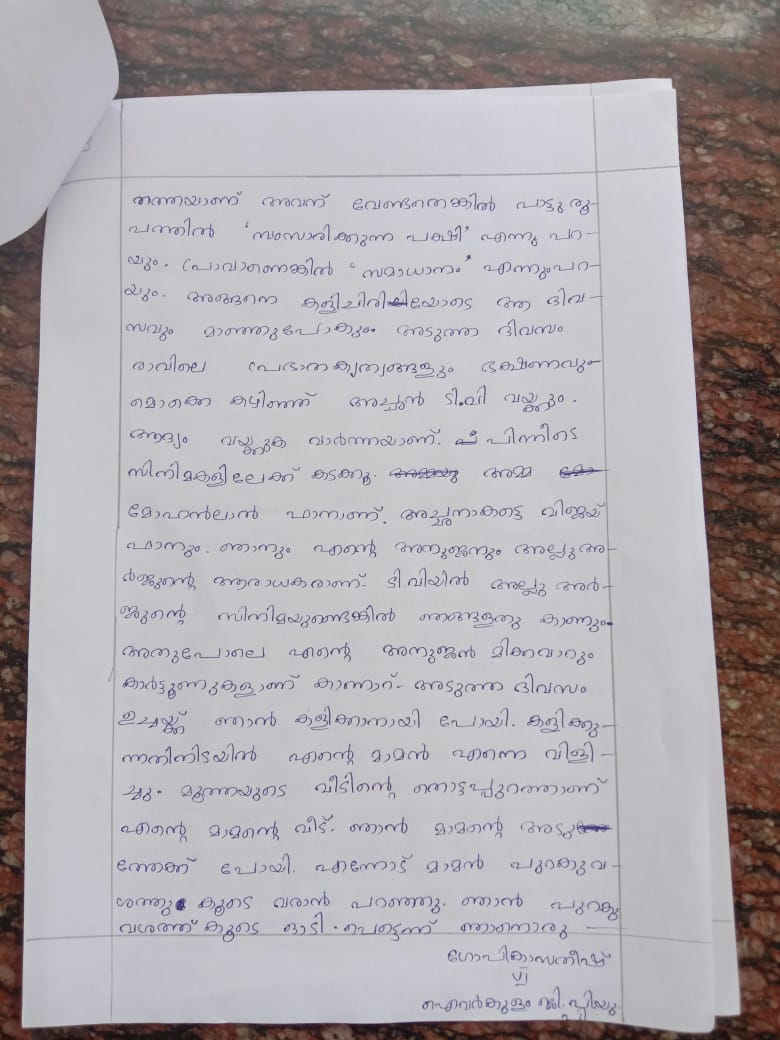 തത്തയാണ് അവന് വേണ്ടതെങ്കിൽ പാട്ടുരൂ-
പത്തിൽ 'സംസാരിക്കുന്ന പക്ഷി' എന്നു പറ-
യും. പ്രാവാണെങ്കിൽ 'സമാധാനം' എന്നുംപറ-
യും. അങ്ങനെ കളിചിരിയോടെ ആ ദിവ-
സവും മാഞ്ഞുപോകും. അടുത്ത ദിവസം
രാവിലെ പ്രഭാതകൃത്യങ്ങളും ഭക്ഷണവു-
മൊക്കെ കഴിഞ്ഞ് അച്ഛൻ ടി.വി വയ്ക്കും.
ആദ്യം വയ്ക്കുക വാർന്നയാണ്. പിന്നീടെ
സിനിമകളിലേക്ക് കടക്കൂ. അമ്മ
മോഹൻലാൻ ഫാനാണ്. അച്ഛനാകട്ടെ വിജയ്
ഫാനും. ഞാനും എന്റെ അനുജനും അല്ലു അ-
ർജുന്റെ ആരാധകരാണ്. ടി.വിയിൽ അല്ലു അർ-
ജുന്റെ സിനിമയുണ്ടെങ്കിൽ ഞങ്ങളതു കാണും.
അതുപോലെ എന്റെ അനുജൻ മിക്കവാറും
കാർട്ടൂണുകളാണ് കാണാറ്. അടുത്ത ദിവസം
ഉച്ചയ്ക്ക് ഞാൻ കളിക്കാനായി പോയി. കളിക്കു-
ന്നതിനിടയിൽ എന്റെ മാമൻ എന്നെ വിളി-
ച്ചു. മൂത്തയുടെ വീടിന്റെ തൊട്ടപ്പുറത്താണ്
എന്റെ മാമന്റെ വീട്. ഞാൻ മാമന്റെ അടു
ത്തേക്ക് പോയി. എന്നോട് മാമൻ പുറകുവ-
ശത്തു കൂടെ വരാൻ പറഞ്ഞു. ഞാൻ പുറകു
വശത്ത് കൂടെ ഓടി. പെട്ടെന്ന് ഞാനൊരു
ഗോപികാസതീഷ്
VI
ഐവർകുളം ജി.പ്പിയു.